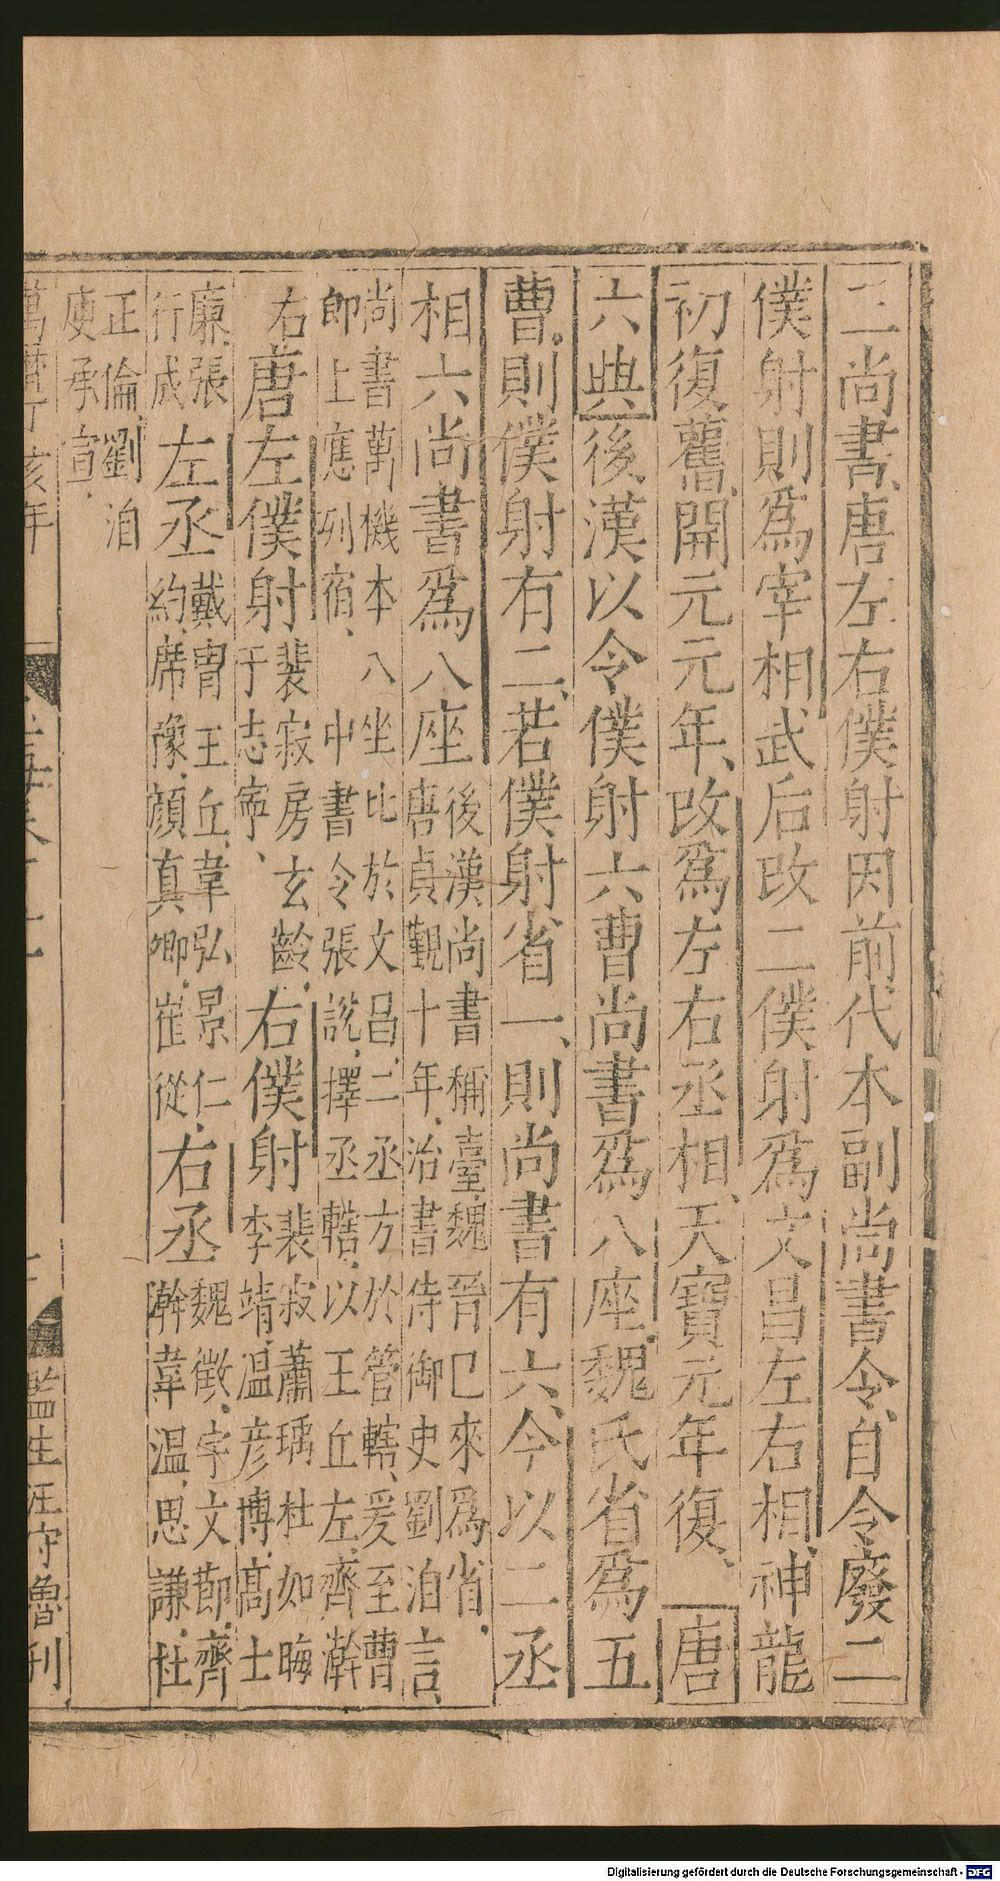 二尚書唐左右僕射因前代本副尚書令自令廢二
僕射則爲宰相武后改二僕射爲文昌左右相神龍
初復舊開元元年改爲左右丞相天寶元年復唐
六典後漢以令僕射六曹尚書爲八座魏氏省爲五
曹則僕射有二若僕射省一則尚書有六今以二丞
相六尚書爲八座
後漢尚書稱臺魏晉已來爲省
唐貞觀十年治書侍御史劉洎言
尚書萬機本八坐比於文昌二丞方於管轄爰至曹
郎上應列宿中書令張說擇丞轄以王丘左齊澣
右唐左僕射
裴寂房玄齡
于志寧
右僕射
裴寂蕭瑀杜如晦
李靖溫彥博高士
廉張
行成
左丞
戴冑王丘韋弘景仁
約席豫顔真卿崔從
右丞
魏徵宇文節齊
澣韋溫思謙杜
正倫劉洎
庾承宣
監生汪守魯刊
Digitalisierung gefördert durch die Deutsche Forschungsgemeinschaft - DFG